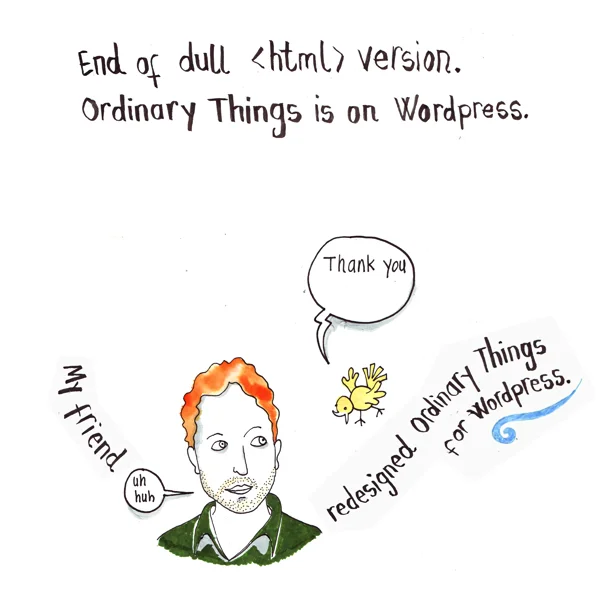 End of dull <html> version.
Ordinary Things is on Wordpress.
Thank you
My friend
uh
huh
redesigned Ordinary Things
for Wordpress.